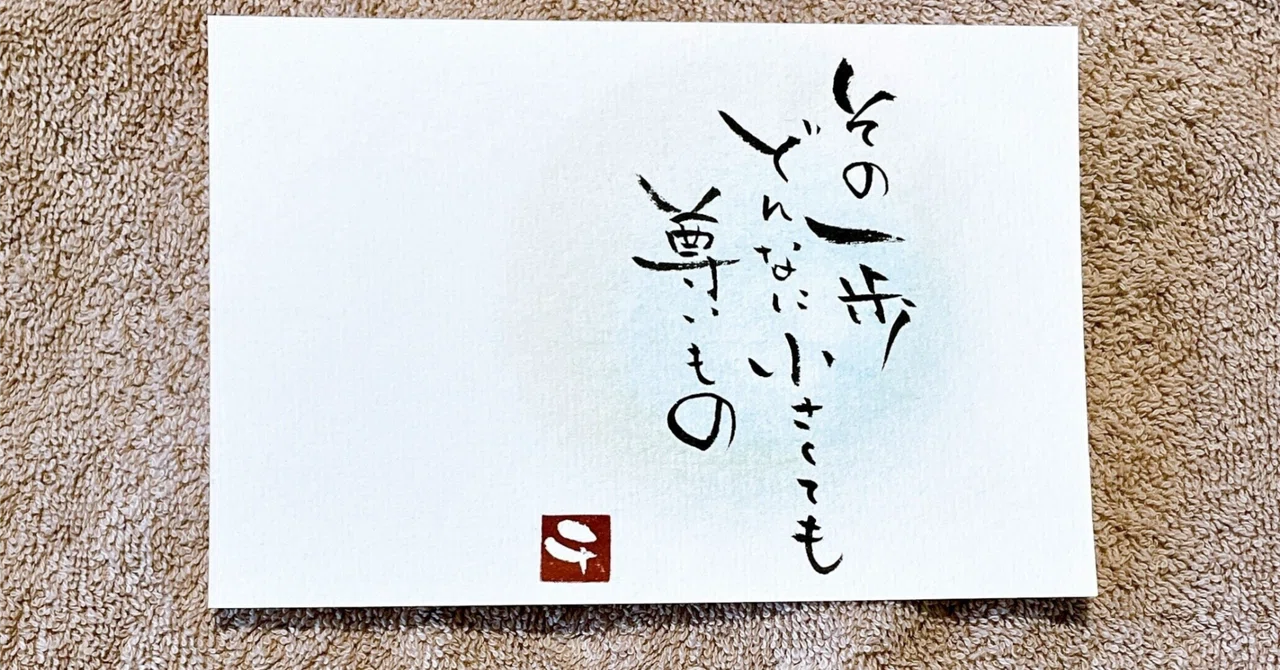 その一歩
どんなに小さくても
尊いもの